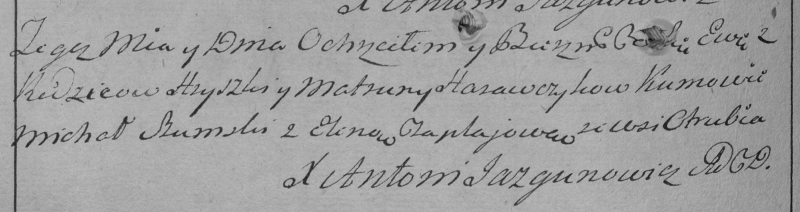 X Antoni Jazgunowicz
Tegoż Mca y Dnia Ochrzciłem y Bierzm Ewę z
Rodziców Hryszki y Matruny Harawczykow Kumowie
Michał Szumski z Eleną Zaplajową ze wsi Otrubia
X Antoni Jazgunowicz